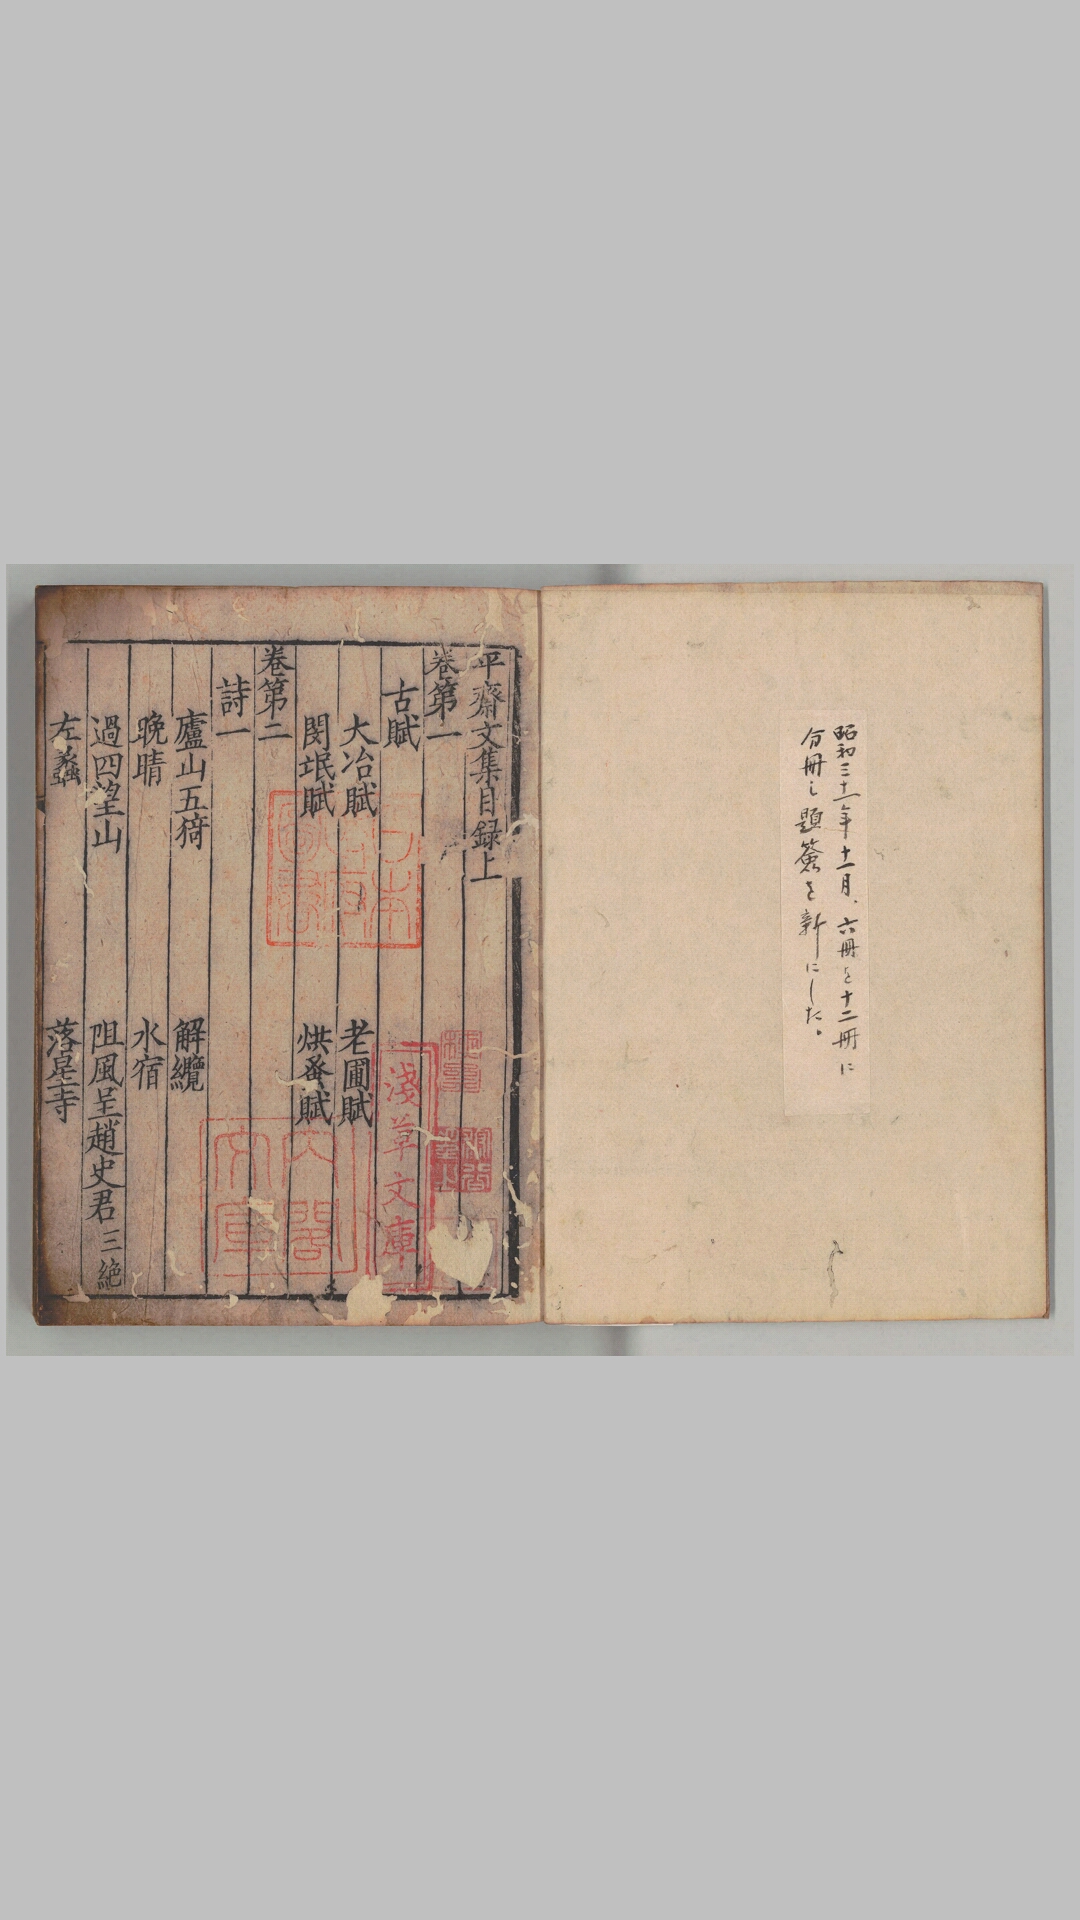 昭和三十一年十一月、六冊を十二冊に
分冊し題簽を新にした。
平齋文集目録上
卷第一
古賦
大冶賦 老圃賦
閔氓賦 烘蚤賦
卷第二
詩一
廬山五猗 解纜
晚晴 水宿
過四望山 阻風呈趙史君三絶
左蠡 落星寺
日本
政府
圖書
淺草文庫
內閣
文庫